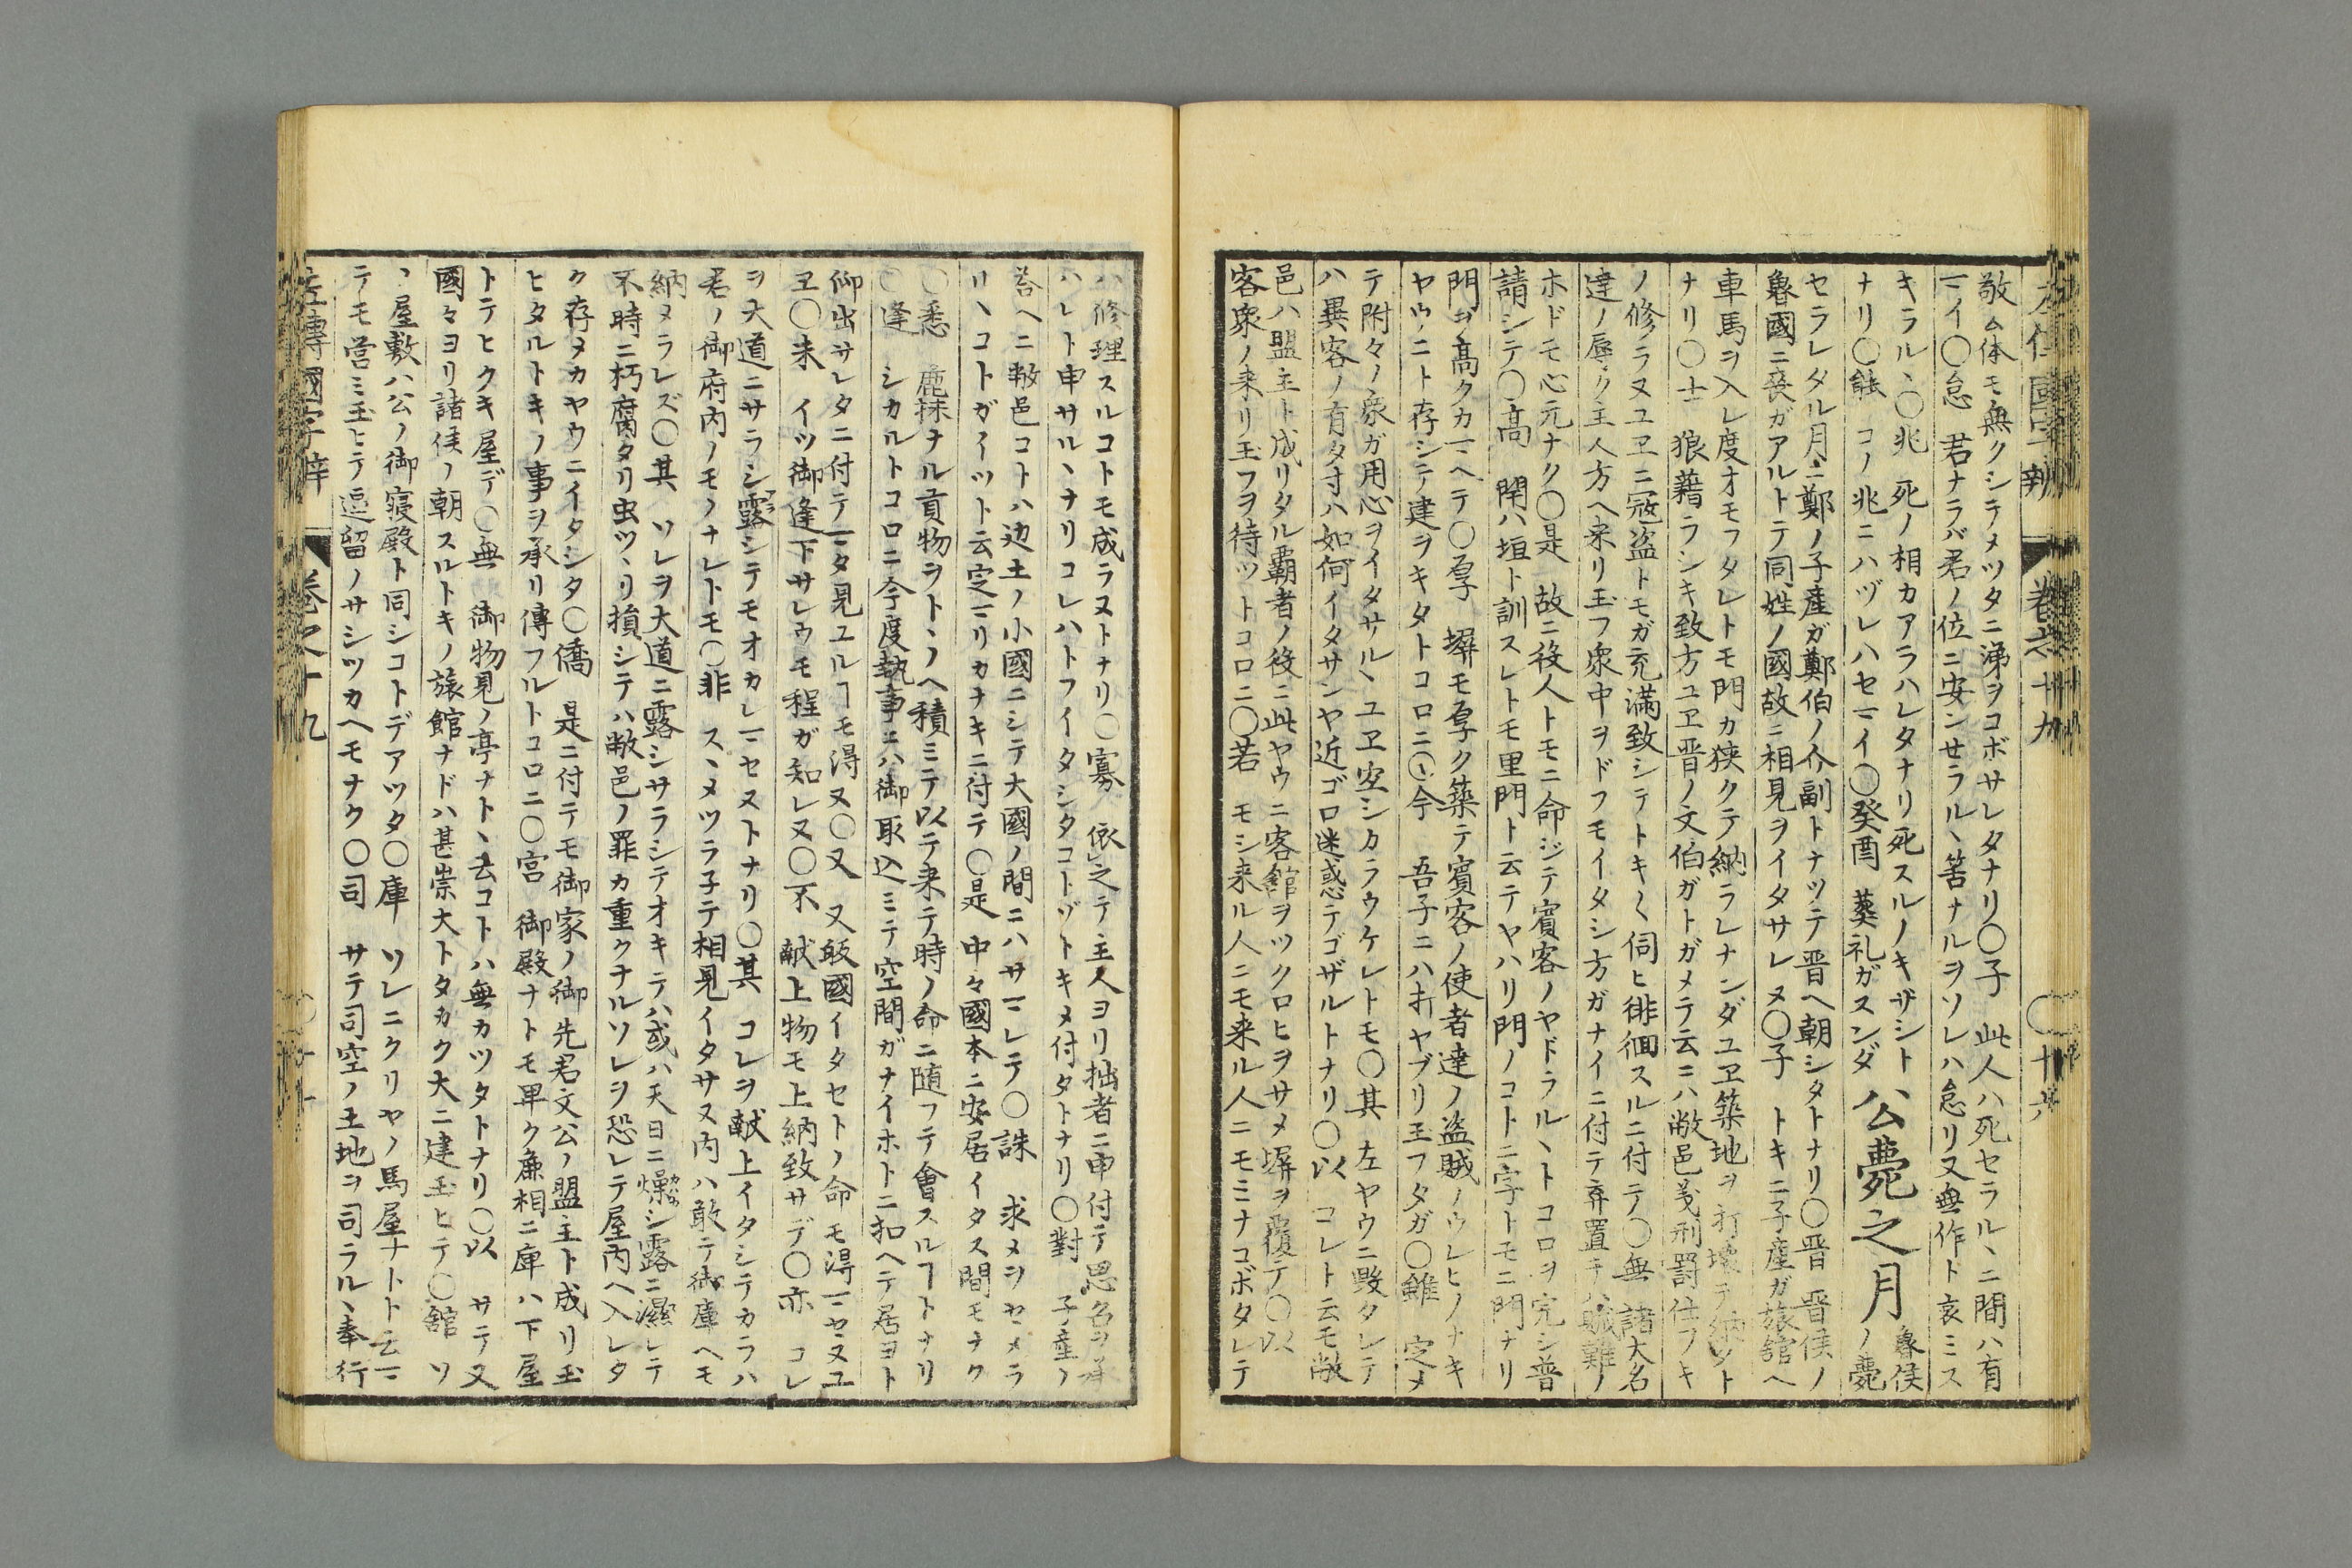 敬ム体モ無クシテメツタニ涕ヲコボサレタナリ〇子 此人ハ死セラルヽニ間ハ有
マイ〇怠 君ナラバ君ノ位ニ安ンせラルヽ筈ナルヲソレハ怠リ又無作ト哀ミス
キラルヽ〇兆 死ノ相カアラハレタナリ死スルノキザシト
ナリ〇能 コノ兆ニハヅレハセマイ〇癸酉 葬礼ガスンダ
公薨之月
魯侯
ノ薨
セラレタル月ニ鄭ノ子産ガ鄭伯ノ介副トナツテ晋ヘ朝シタトナリ〇晋 晋侯ノ
魯國ニ喪ガアルトテ同姓ノ國故ニ相見ヲイタサレヌ〇子 トキニ子産ガ旅舘ヘ
車馬ヲ入レ度オモフタレトモ門カ狭クテ納ラレナンダユヱ築地ヲ打壊テ納ツト
ナリ〇士 狼藉ラシキ致方ユヱ晋ノ文伯ガトガメテ云ニハ敝邑義刑罰仕フキ
ノ修ラヌユヱニ寇盗トモガ充満致シテトキ〱伺ヒ徘徊スルニ付テ〇無 諸大名
達ノ辱ク主人方ヘ来リ玉フ衆中ヲドフモイタシ方ガナイニ付テ弃置テハ賊難ノ
ホドモ心元ナク〇是 故ニ役人トモニ命ジテ賓客ノヤドラルヽトコロヲ完シ普
請シテ〇高 閈ハ垣ト訓スレトモ里門ト云テヤハリ門ノコトニ字トモニ門ナリ
門ヲ高クカマヘテ〇厚 墻モ厚ク築テ賓客ノ使者達ノ盗賊ノウレヒノナキ
ヤウニト存シテ建ヲキタトコロニ〇今 吾子ニハ打ヤブリ玉フタガ〇雖 定メ
テ附々ノ衆ガ用心ヲイタサルヽユヱ空シカラウケレトモ〇其 左ヤウニ毀タレテ
ハ異客ノ有タ寸ハ如何イタサンヤ近ゴロ迷惑テゴザルトナリ〇以 コレト云モ敝
邑ハ盟主ト成リタル覇者ノ役ニ此ヤウニ客舘ヲツクロヒヲサメ墻ヲ覆テ〇以
客衆ノ来リ玉フヲ待ツトコロニ〇若 モシ来ル人ニモ来ル人ニモミナコボタレテ
巻之十九
〇十六
ハ修理スルコトモ成ラヌトナリ〇寡 依之テ主人ヨリ拙者ニ申付テ思名ヲ承
ハレト申サルヽナリコレハトフイタシタコトゾトキメ付タトナリ〇對 子産ノ
荅ヘニ敝邑コトハ辺土ノ小國ニシテ大國ノ間ニハサマレテ〇誅 求メヲせメラ
リヽコトガイツト云定マリカナキニ付テ〇是 中々國本ニ安居イタス間モナク
〇悉 麁抹ナル貢物ヲトヽノヘ積ミテ以テ来テ時ノ命ニ随フテ會スルヿトナリ
〇逢 シカルトコロニ今度執事ニハ御取込ミテ空間ガナイホトニ扣ヘテ居ヨト
仰出サレタニ付テマタ見ユルヿモ得ヌ〇又 又皈國イタセトノ命モ得マセヌユ
ヱ〇未 イツ御逢下サレウモ程ガ知レヌ〇不 献上物モ上納致サデ〇亦 コレ
ヲ大道ニサラシ露シテモオカレマセヌトナリ〇其 コレヲ献上イタシテカラハ
君ノ御府内ノモノナレトモ〇非 スヽメツラ子テ相見イタサヌ内ハ敢テ御庫ヘモ
納メラレズ〇其 ソレヲ大道ニ露シサラシテオキテハ或ハ天日ニ燥シ露ニ濕レテ
不時ニ朽腐タリ虫ツヽリ損シテハ敝邑ノ罪カ重クナルソレヲ恐レテ屋内ヘ入レタ
ク存メカヤウニイタシタ〇僑 是ニ付テモ御家ノ御先君文公ノ盟主ト成リ玉
ヒタルトキノ事ヲ承リ傳フルトコロニ〇宮 御殿ナトモ卑ク廉相ニ庳ハ下屋
トテヒクキ屋デ〇無 御物見ノ亭ナトヽ云コトハ無カツタトナリ〇以 サテ又
國々ヨリ諸侯ノ朝スルトキノ旅館ナドハ甚崇大トタカク大ニ建玉ヒテ〇舘 ソ
ヽ屋敷ハ公ノ御寝殿ト同シコトデアツタ〇庫 ソレニクリヤノ馬屋ナトト云マ
テモ営ミ玉ヒテ逗留ノサシツカヘモナク〇司 サテ司空ノ土地ヲ司ラルヽ奉行
左傳國字辯 巻之十九